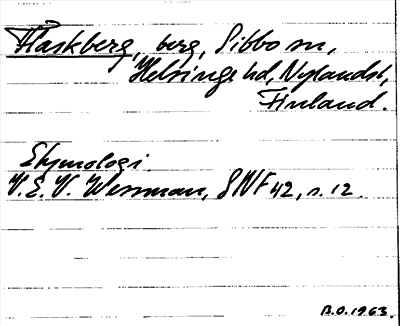 Flaskberg, berg, Sibbo sn,
Helsinge hd, Nylands l,
Finland.
Etymologi.
V.E.V. Wessman, SNF 42, s. 12.
B.O. 1963.